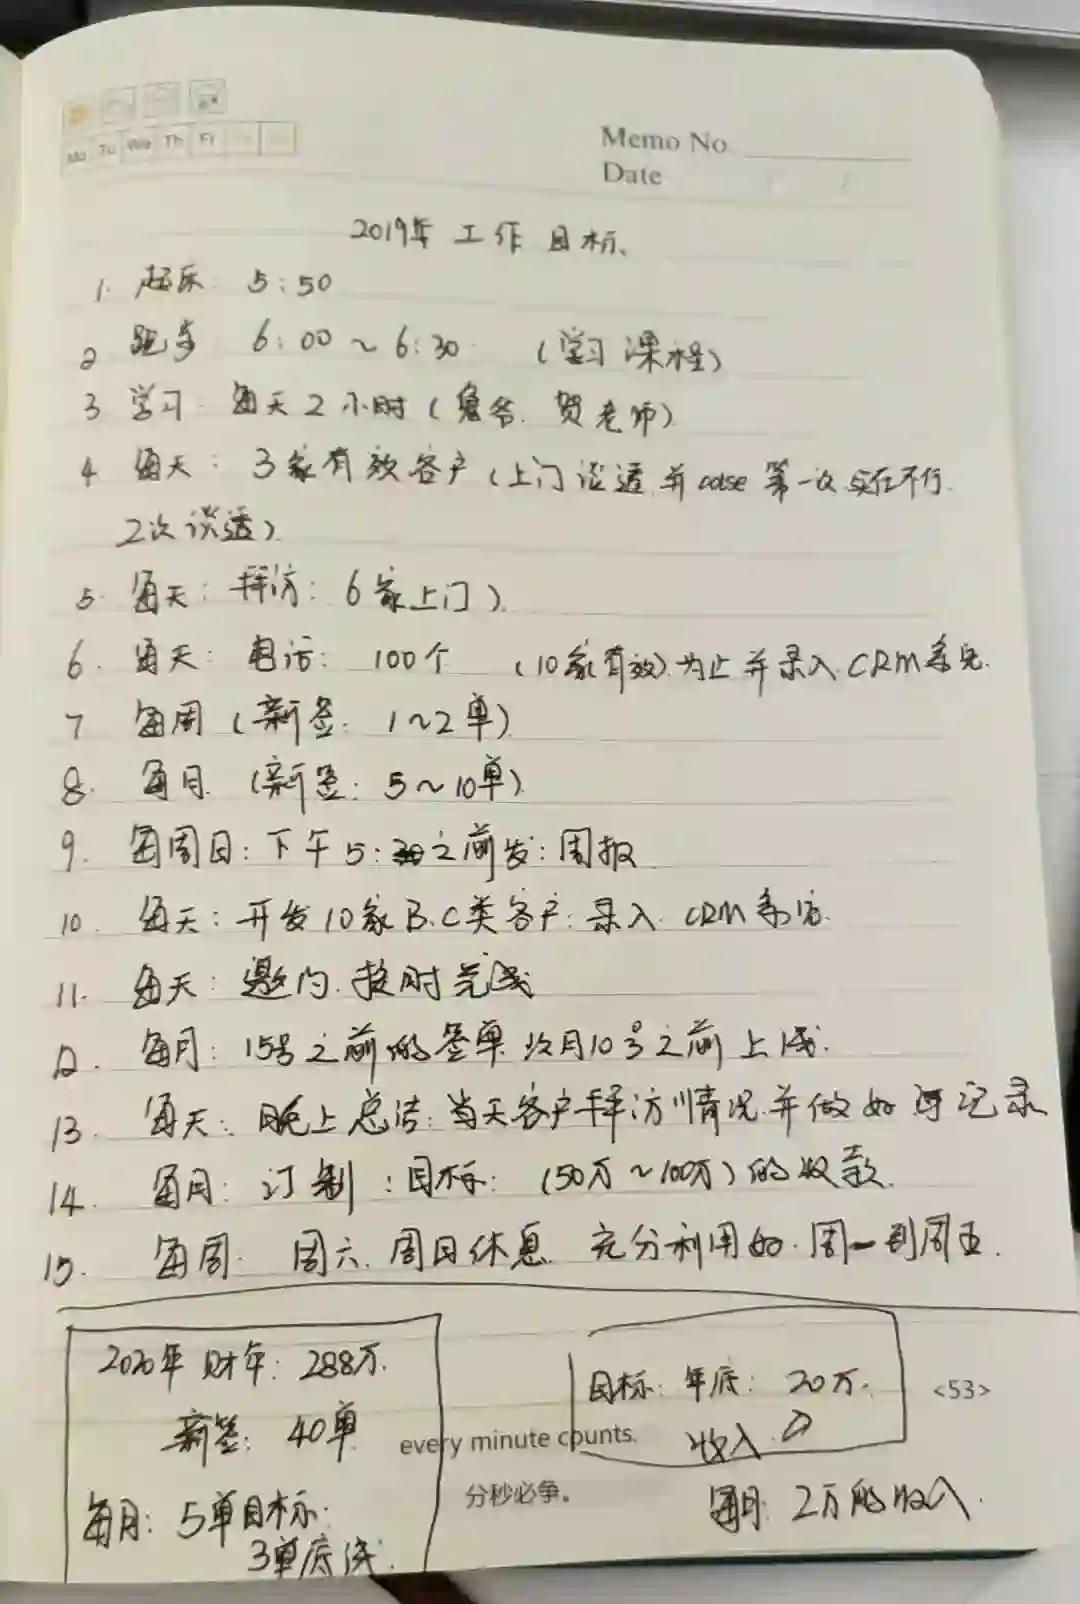 Mo Tu We Th Fr
Memo No.
Date / /
2019年 工作目标、
1. 起床: 5:50
2 跑步 6:00~6:30 (学习课程)
3 学习: 每天2小时(鬼爷. 贺老师)
4 每天: 3家有效客户(上门谈透,并 第一次实在不行.
2次谈透)
5. 每天: 拜访: 6家上门)
6. 每天: 电话: 100个 (10家有效)为止并录入CRM系统.
7 每周(新签: 1~2单)
8. 每月 (新签: 5~10单)
9. 每周日:下午5:30之前发:周报
10. 每天:开发10家B.C类客户:录入 CRM系统.
11. 每天: 邀约.按时完成
12. 每月: 15号之前的签单 次月10号之前上线.
13. 每天: 晚上总结:当天客户拜访情况.并做好 记录
14. 每月: 订制:目标: (50万~100万)的收款.
15. 每周. 周六、周日休息 充分利用好.周一到周五.
2020年财年: 288万.
新签: 40单
每月: 5单目标.
3单底线.
目标: 年底: 20万.
收入
<53>
every minute counts.
分秒必争。
每月: 2万的收入.